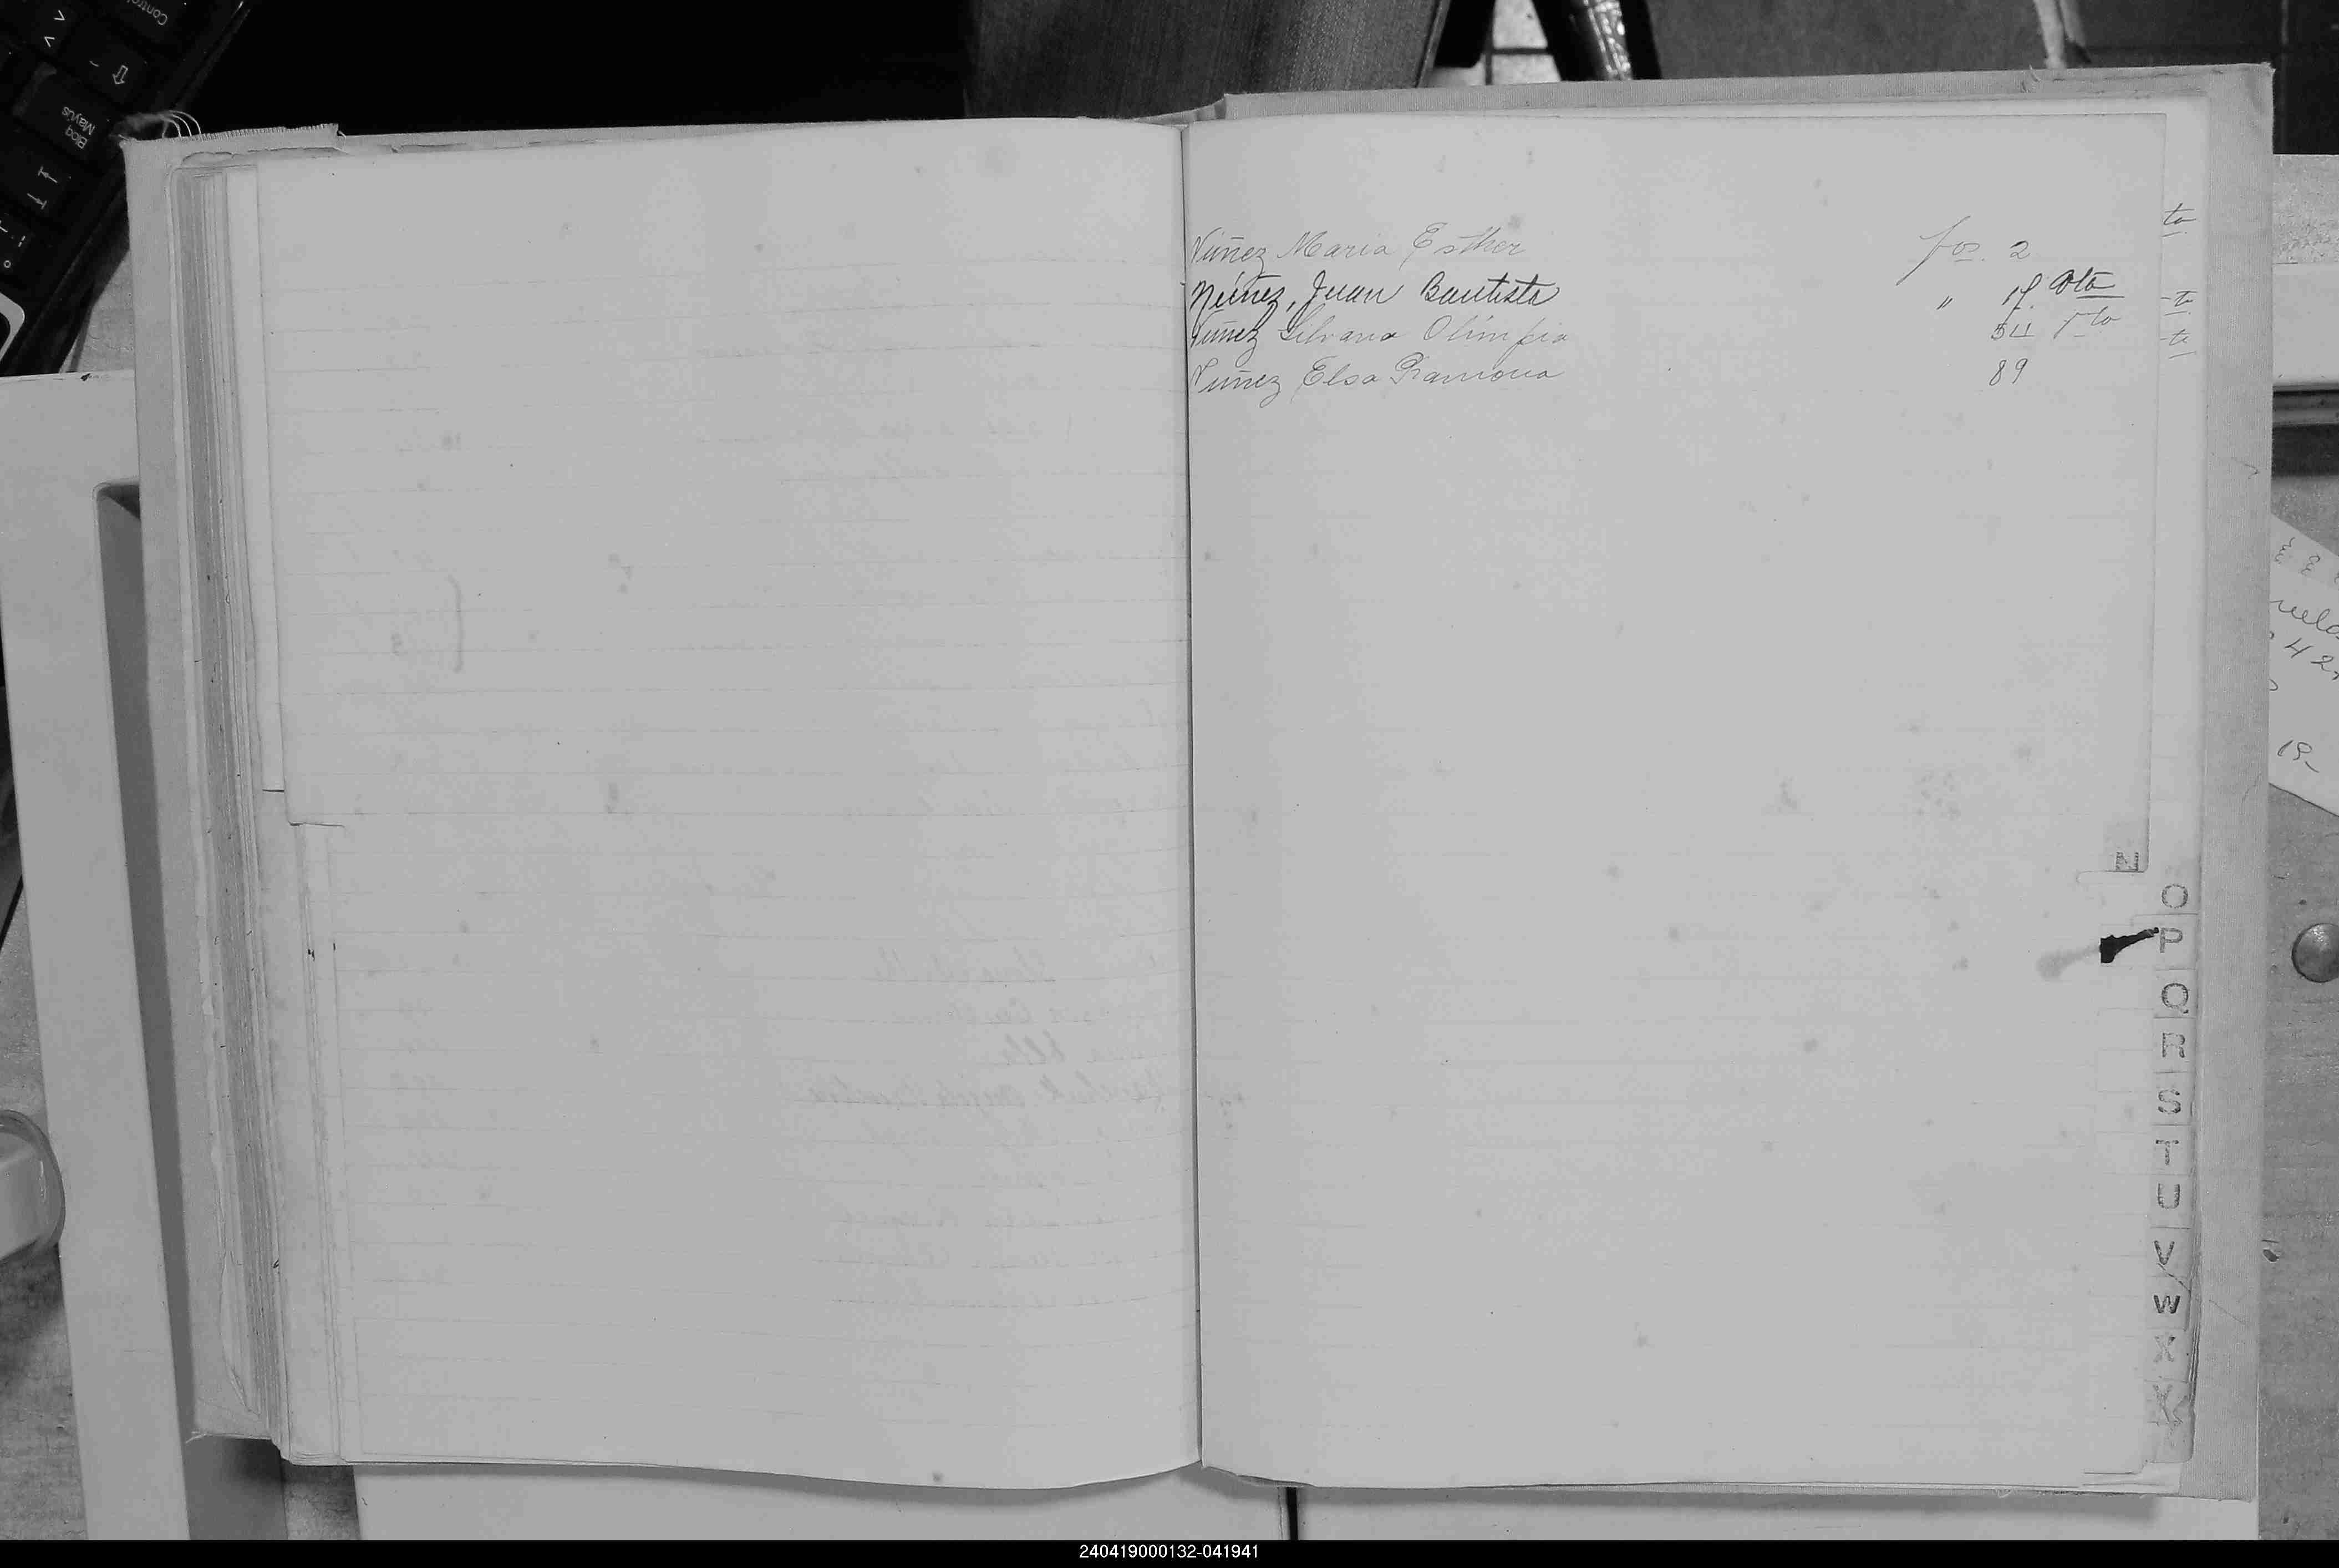 Núñez Maria Esther fos. 2
Núñez, Juan Bautista " 17 Vta
Núñez Silvana Olimpia 511 Vto
Núñez Elsa Ramona 89
N
O
P
Q
R
S
T
U
V
W
X
Y
240419000132-041941